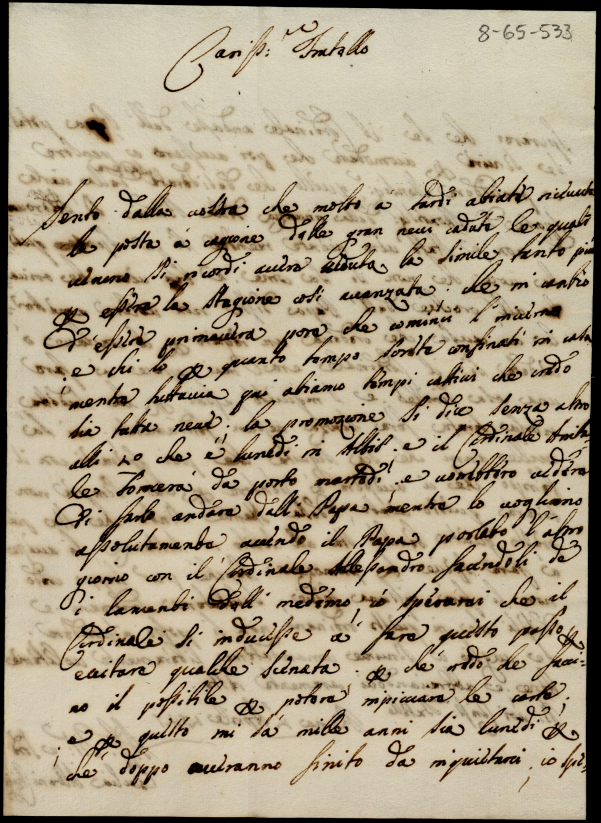 8-65-533
Cariss:mo Fratello
Sento dalla vostra che molto a tardi abiate riceuuta
la posta a cagione delle gran neui cadute, le quali
si ricordi auere veduta la simile tanto più
essere la stagione così auanzata: che in cambio
d'essere primauera pare che cominci l'inuerno
e chi sò quanto tempo sarete confinati in casa
mentre tuttauia qui abiamo tempi cattiui che credo
sia tutta neue: la promozione si dice senza altro
alli 20 che è lunedì in Albis: e il Cardinale
le Tornerà da porto martedì: e uorebbero uedere
di farlo andare dall Papa mentre lo uogliano
assolutamente auendo il Papa parlato l'altro
giorno con il Cardinale Alessandro facendoli de
i lamenti dell medemo, io sperarei che il
Cardinale si inducesse a fare questo passo
euitare qualche scenata. che credo che facci-
no il possibile potere inpiccare le carte:
e questo mi sà mille anni sia lunedì
che doppo aueranno finito da inquietarci, io spe-